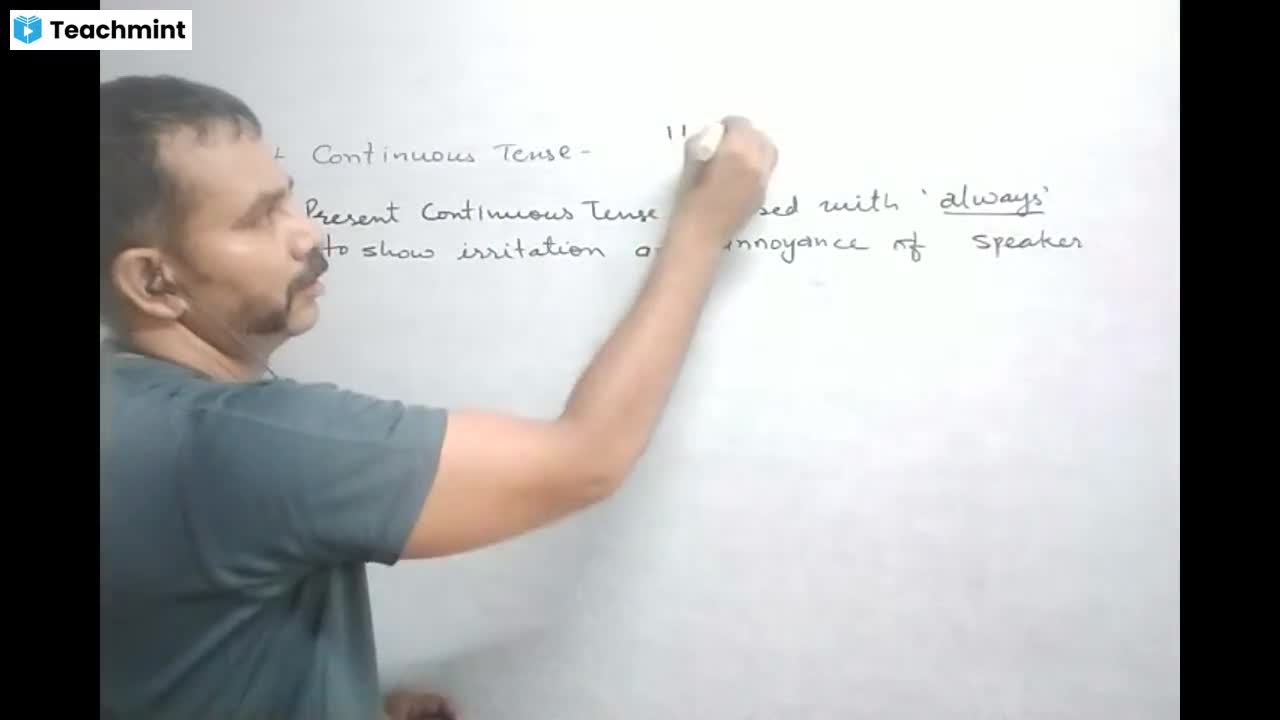 Teachmint
Continuous Tense -
11
Present Continuous Tense with 'always'
to show irritation annoyance of speaker